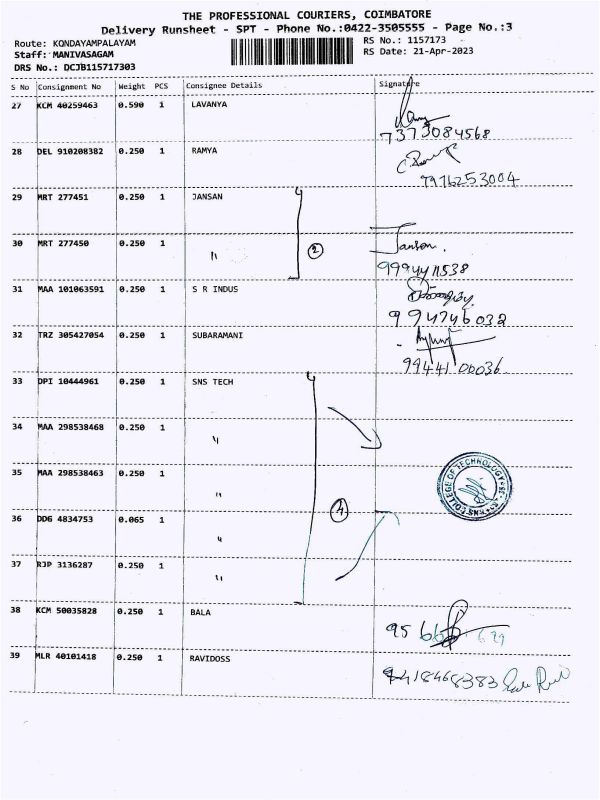 THE PROFESSIONAL COURIERS, COIMBATORE
Delivery Runsheet - SPT - Phone No.:0422-3505555 - Page No.:3
Route: KONDAYAMPALAYAM
RS No.: 1157173
Staff: MANIVASAGAM
RS Date: 21-Apr-2023
DRS No.: DCJB115717303
S No Consignment No Weight PCS Consignee Details Signature
27 KCM 40259463 0.590 1 LAVANYA
7373084568
28 DEL 910208382 0.250 1 RAMYA
9976253004
29 MRT 277451 0.250 1 JANSAN
30 MRT 277450 0.250 1 " 2 Janson.
9994411538
31 MAA 101063591 0.250 1 S R INDUS
994746032
32 TRZ 305427054 0.250 1 SUBARAMANI
9944100036
33 DPI 10444961 0.250 1 SNS TECH
34 MAA 298538468 0.250 1 "
35 MAA 298538463 0.250 1 "
COLLEGE OF TECHNOLOGY
36 DDG 4834753 0.065 1 "
37 RJP 3136287 0.250 1 "
38 KCM 50035828 0.250 1 BALA
39 MLR 40101418 0.250 1 RAVIDOSS
9418468383